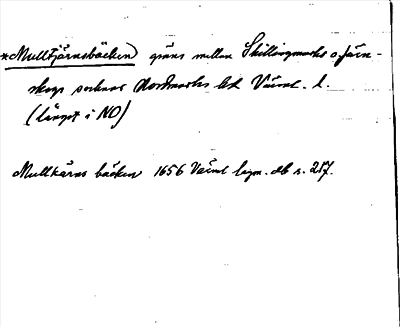 *Mulltjärnsbäcken gräns mellan Skillingmarks o. Järn-
skogs socknar Nordmarks hd Värml. l.
(längst i NO)
Mullkärns bäcken 1656 Värml lagm. db s. 217.